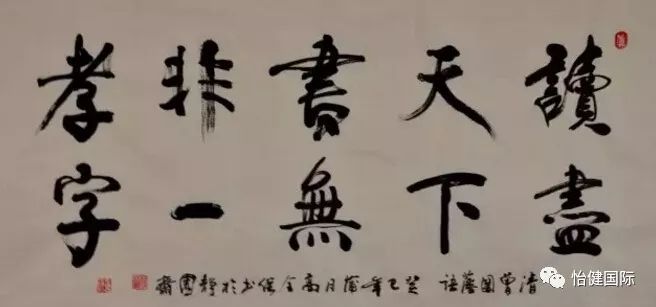 讀盡
天下
書無
非一
孝字
清曾國藩語 癸巳年蒲月高全保书於靜園齋
怡健国际